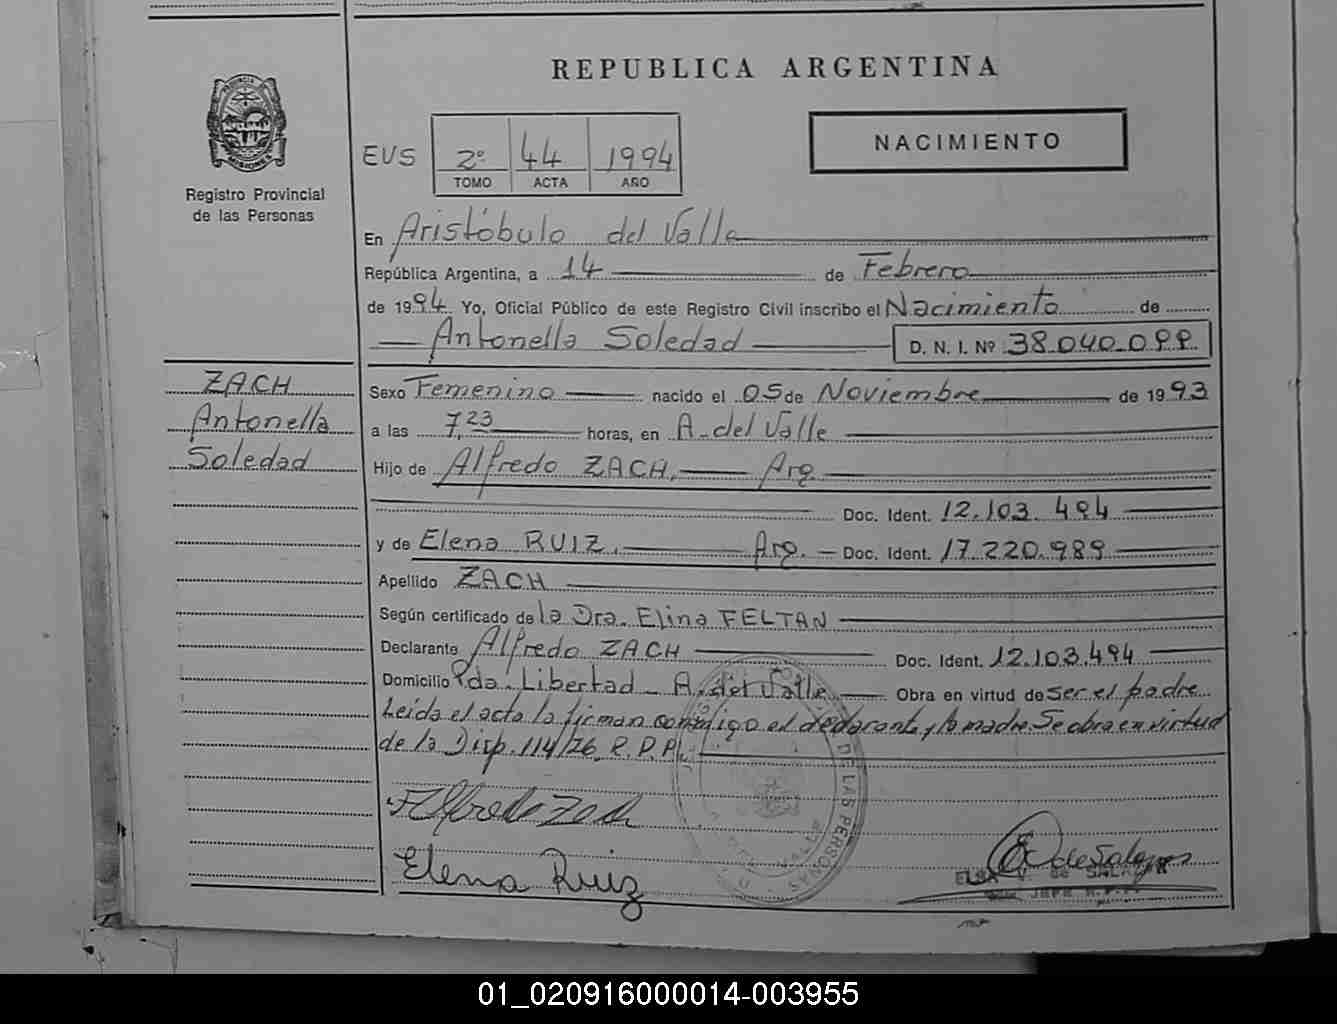 REPUBLICA ARGENTINA
PROVINCIA
MISIONES
Registro Provincial
de las Personas
EVS 2º 44 1994
TOMO ACTA AÑO
NACIMIENTO
En Aristóbulo del Valle
República Argentina, a 14 de Febrero
de 1994 Yo, Oficial Público de este Registro Civil inscribo el Nacimiento de
Antonella Soledad D. N. I. Nº 38.040.099
ZACH
Antonella
Soledad
Sexo Femenino nacido el 05 de Noviembre de 1993
a las 7,23 horas, en A. del Valle
Hijo de Alfredo ZACH, Arg.
Doc. Ident. 12.103.494
y de Elena RUIZ, Arg. Doc. Ident. 17.220.989
Apellido ZACH
Según certificado de la Dra. Elina FELTAN
Declarante Alfredo ZACH Doc. Ident. 12.103.494
Domicilio Pda. Libertad - A. del Valle Obra en virtud de ser el padre
Leída el acta la firman conmigo el declarante y la madre. Se obra en virtud
de la Disp. 114/76 R.D.P.
DE LAS PERSONAS
DEL VALLE
Alfredo Zach
Elena Ruiz
E de Salazar
ELSA V. de SALAZAR
JEFE R.P.P.
01_020916000014-003955